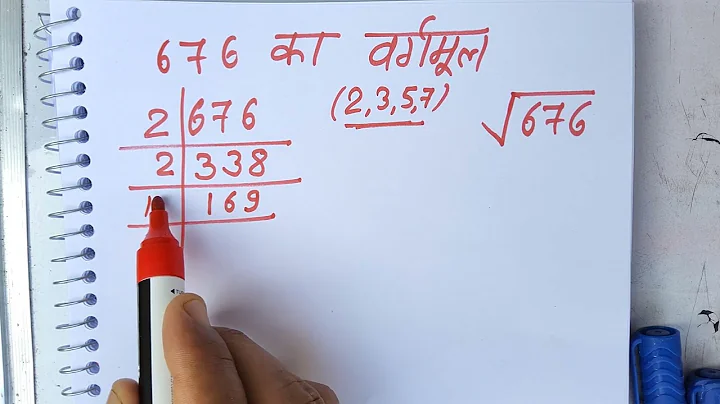 676 का वर्गमूल
(2,3,5,7)
√676
2 676
2 338
1 169